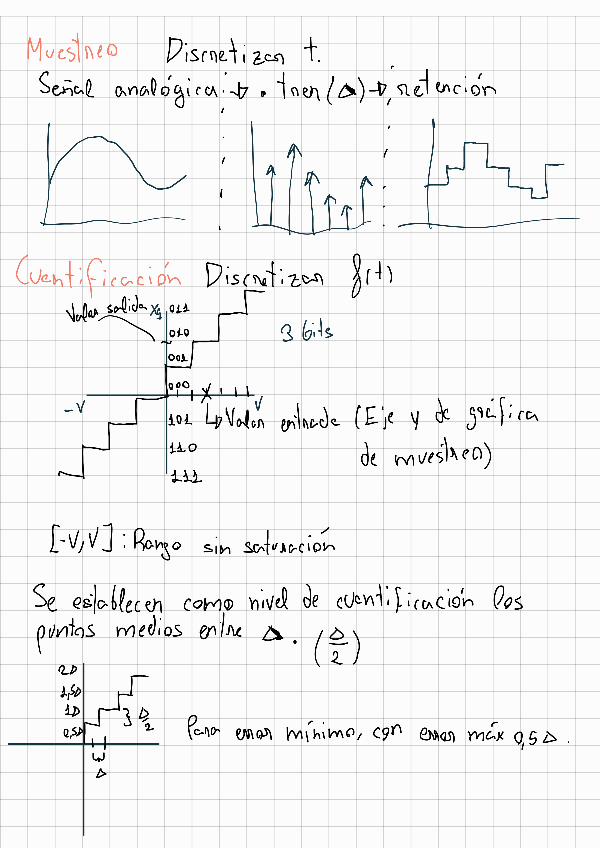 Muestreo Discretizar t.
Señal analógica → · tren(Δ) → retención
Cuantificación Discretizar f(t)
Valor salida Xq 011
010
3 bits
001
000
-V V
101 ↳ Valor entrada (Eje y de gráfica
110 de muestreo)
111
[-V,V]: Rango sin saturación
Se establecen como nivel de cuantificación los
puntos medios entre Δ. (Δ/2)
2Δ
1,5Δ
1Δ } Δ/2
0,5Δ Para error mínimo, con error máx 0,5Δ.
Δ